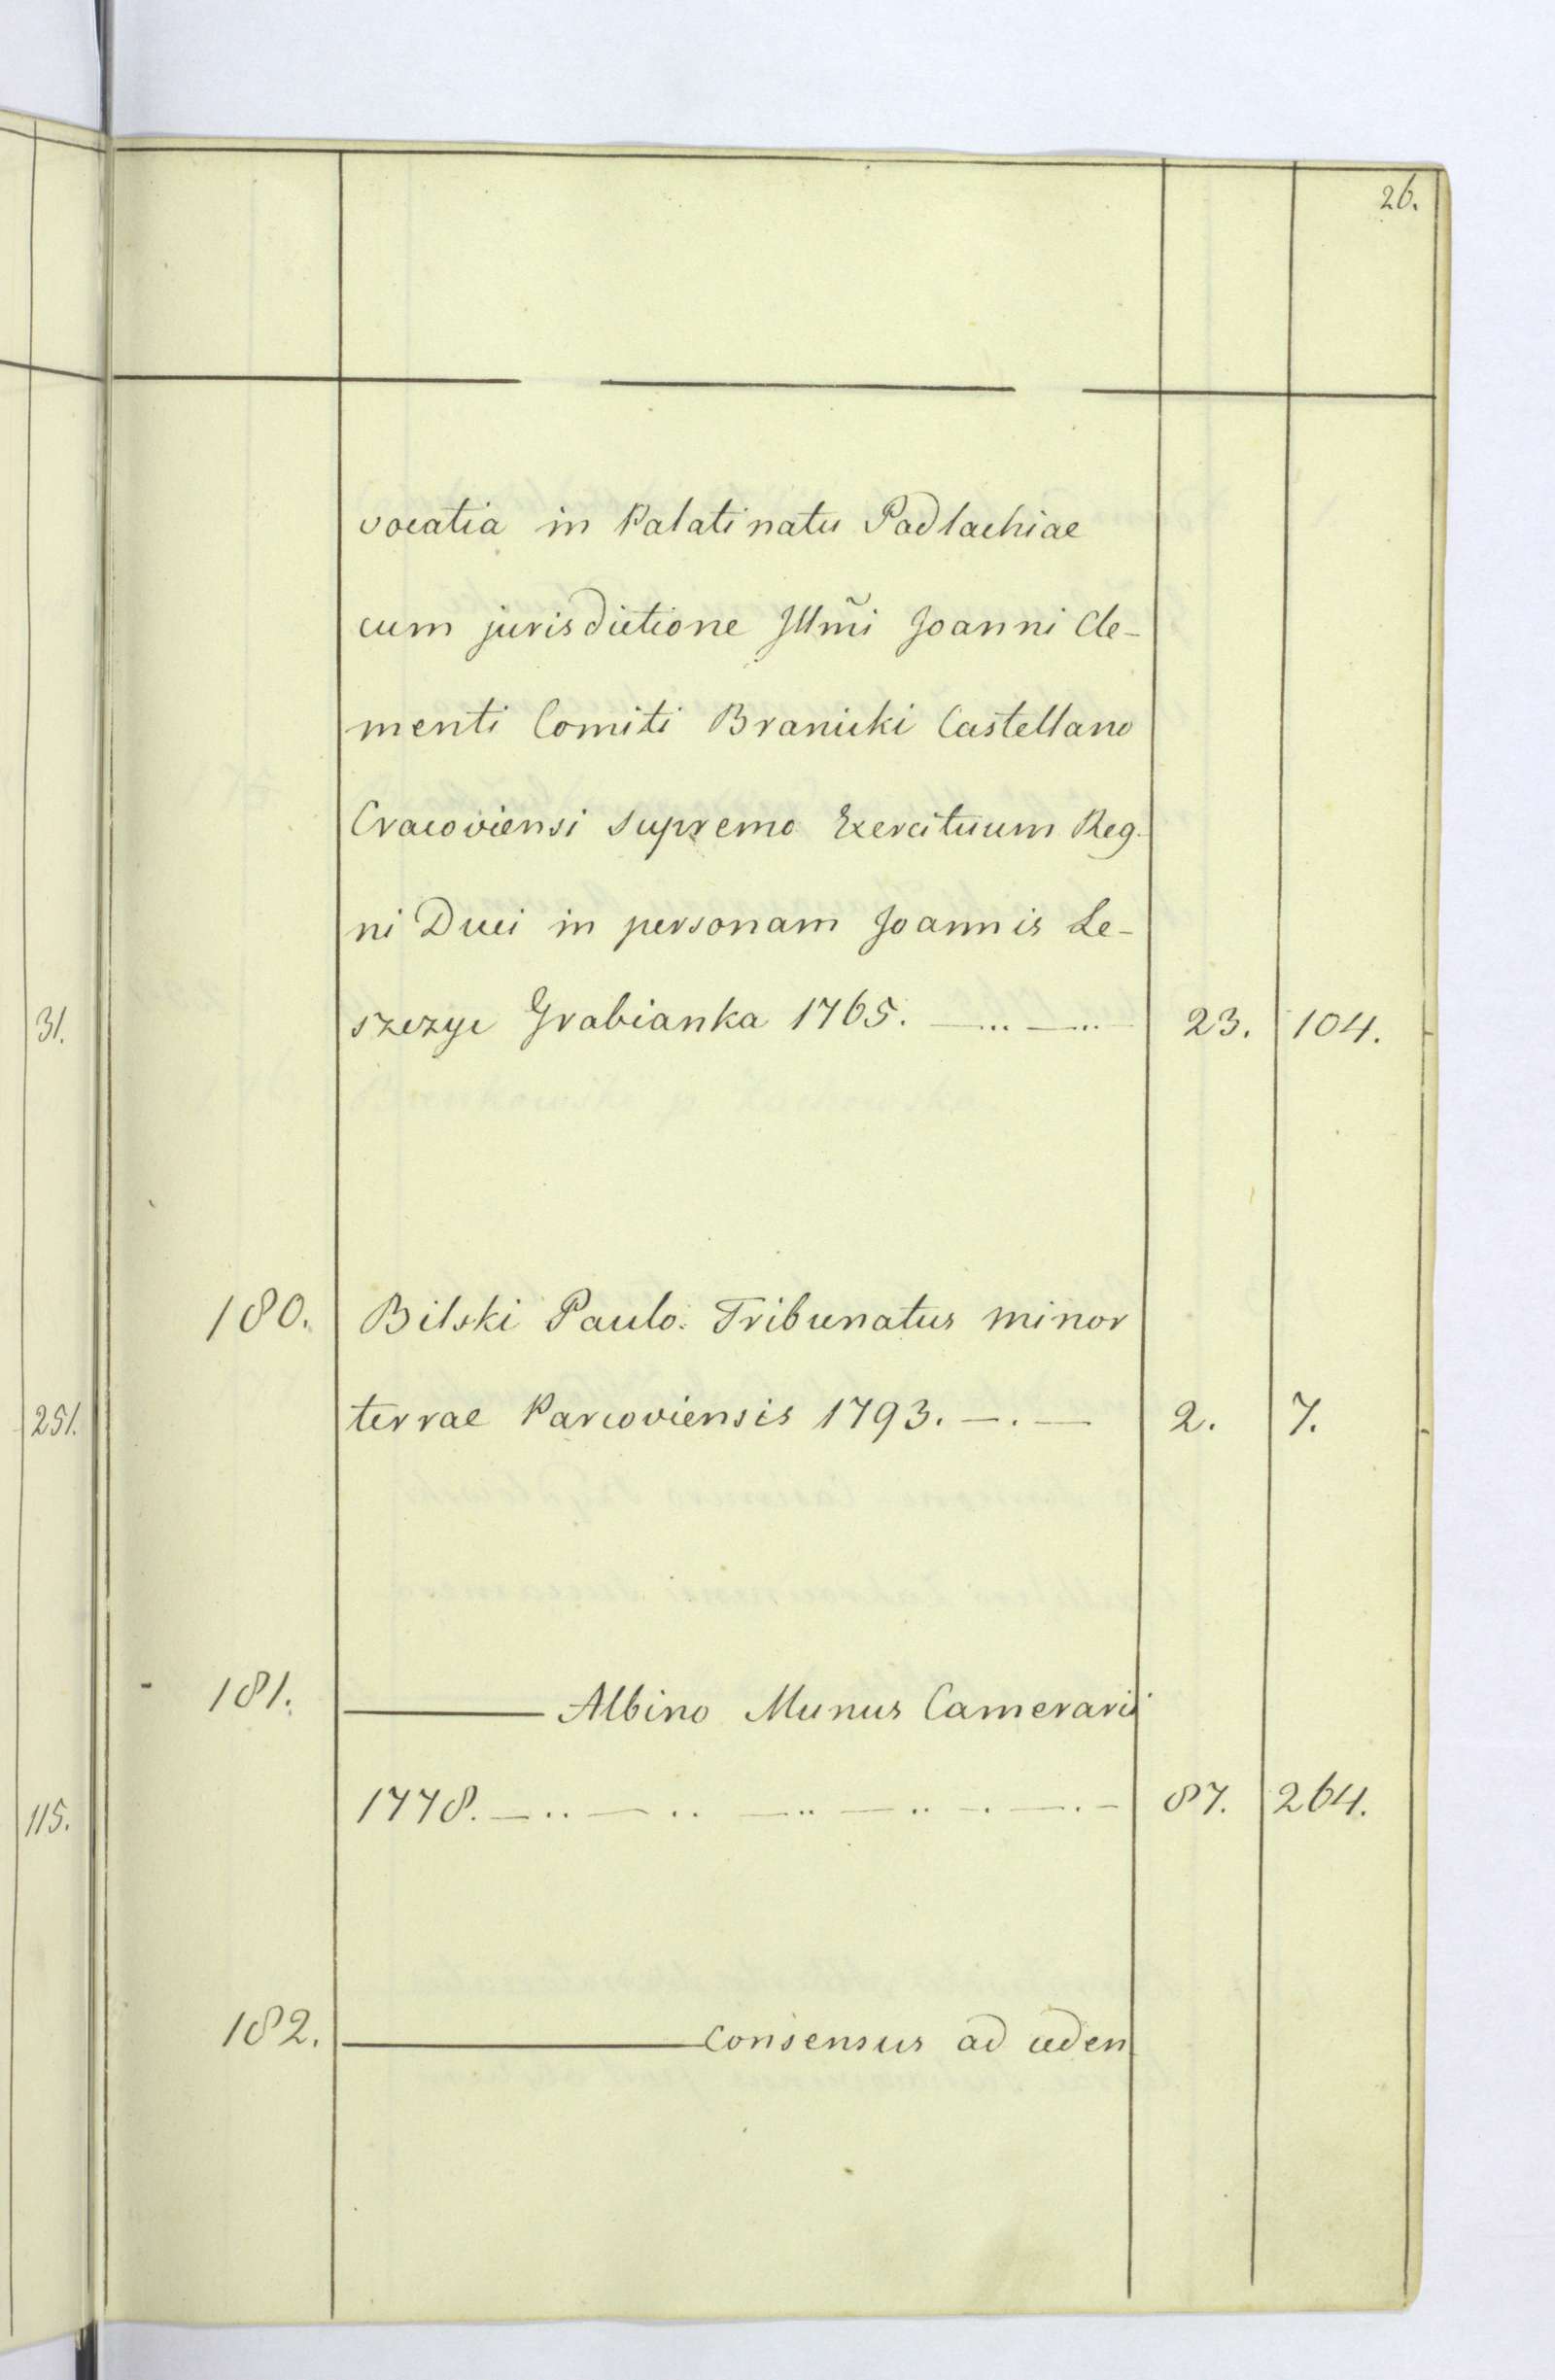 26.
vocatia in Palatinatu Padlachiae
cum jurisdictione Jllm̃i Joanni Cle-
menti Comiti Branicki Castellano
Cracoviensi supremo Exercituum Reg-
ni Duci in personam Joannis Le-
31. szczyc Grabianka 1765. 23. 104.
180. Bilski Paulo. Tribunatus minor
251. terrae Parcoviensis 1793. 2. 7.
181. Albino Munus Camerarii
115. 1778. 87. 264.
182. consensus ad ceden